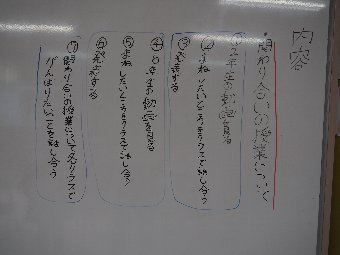 内容
・関わり合いの授業について
①2年生の動画を見る
②まねしたいところをクラスで話し合う
③発表する
④6年生の動画を見る
⑤まねしたいところをクラスで話し合う
⑥発表する
⑦関わり合いの授業について各クラスで
がんばりたいことを話し合う